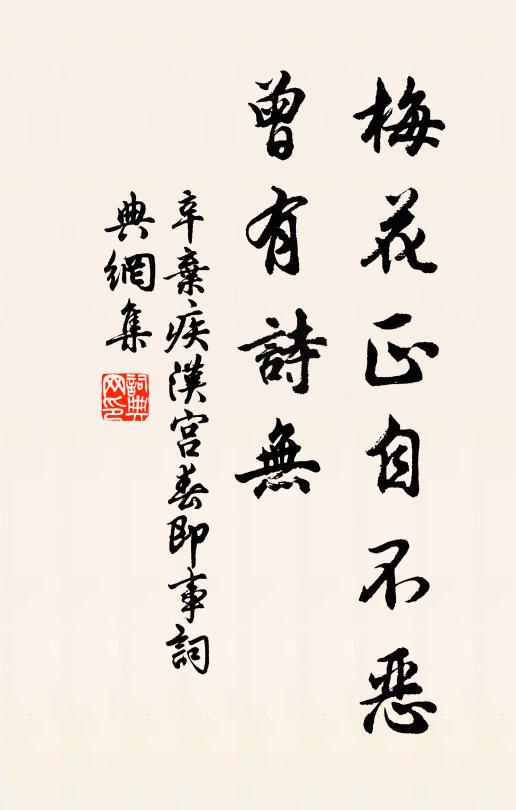 梅花正自不惡
曾有詩無
辛棄疾漢宮春即事詞
典網集
詞典
网印